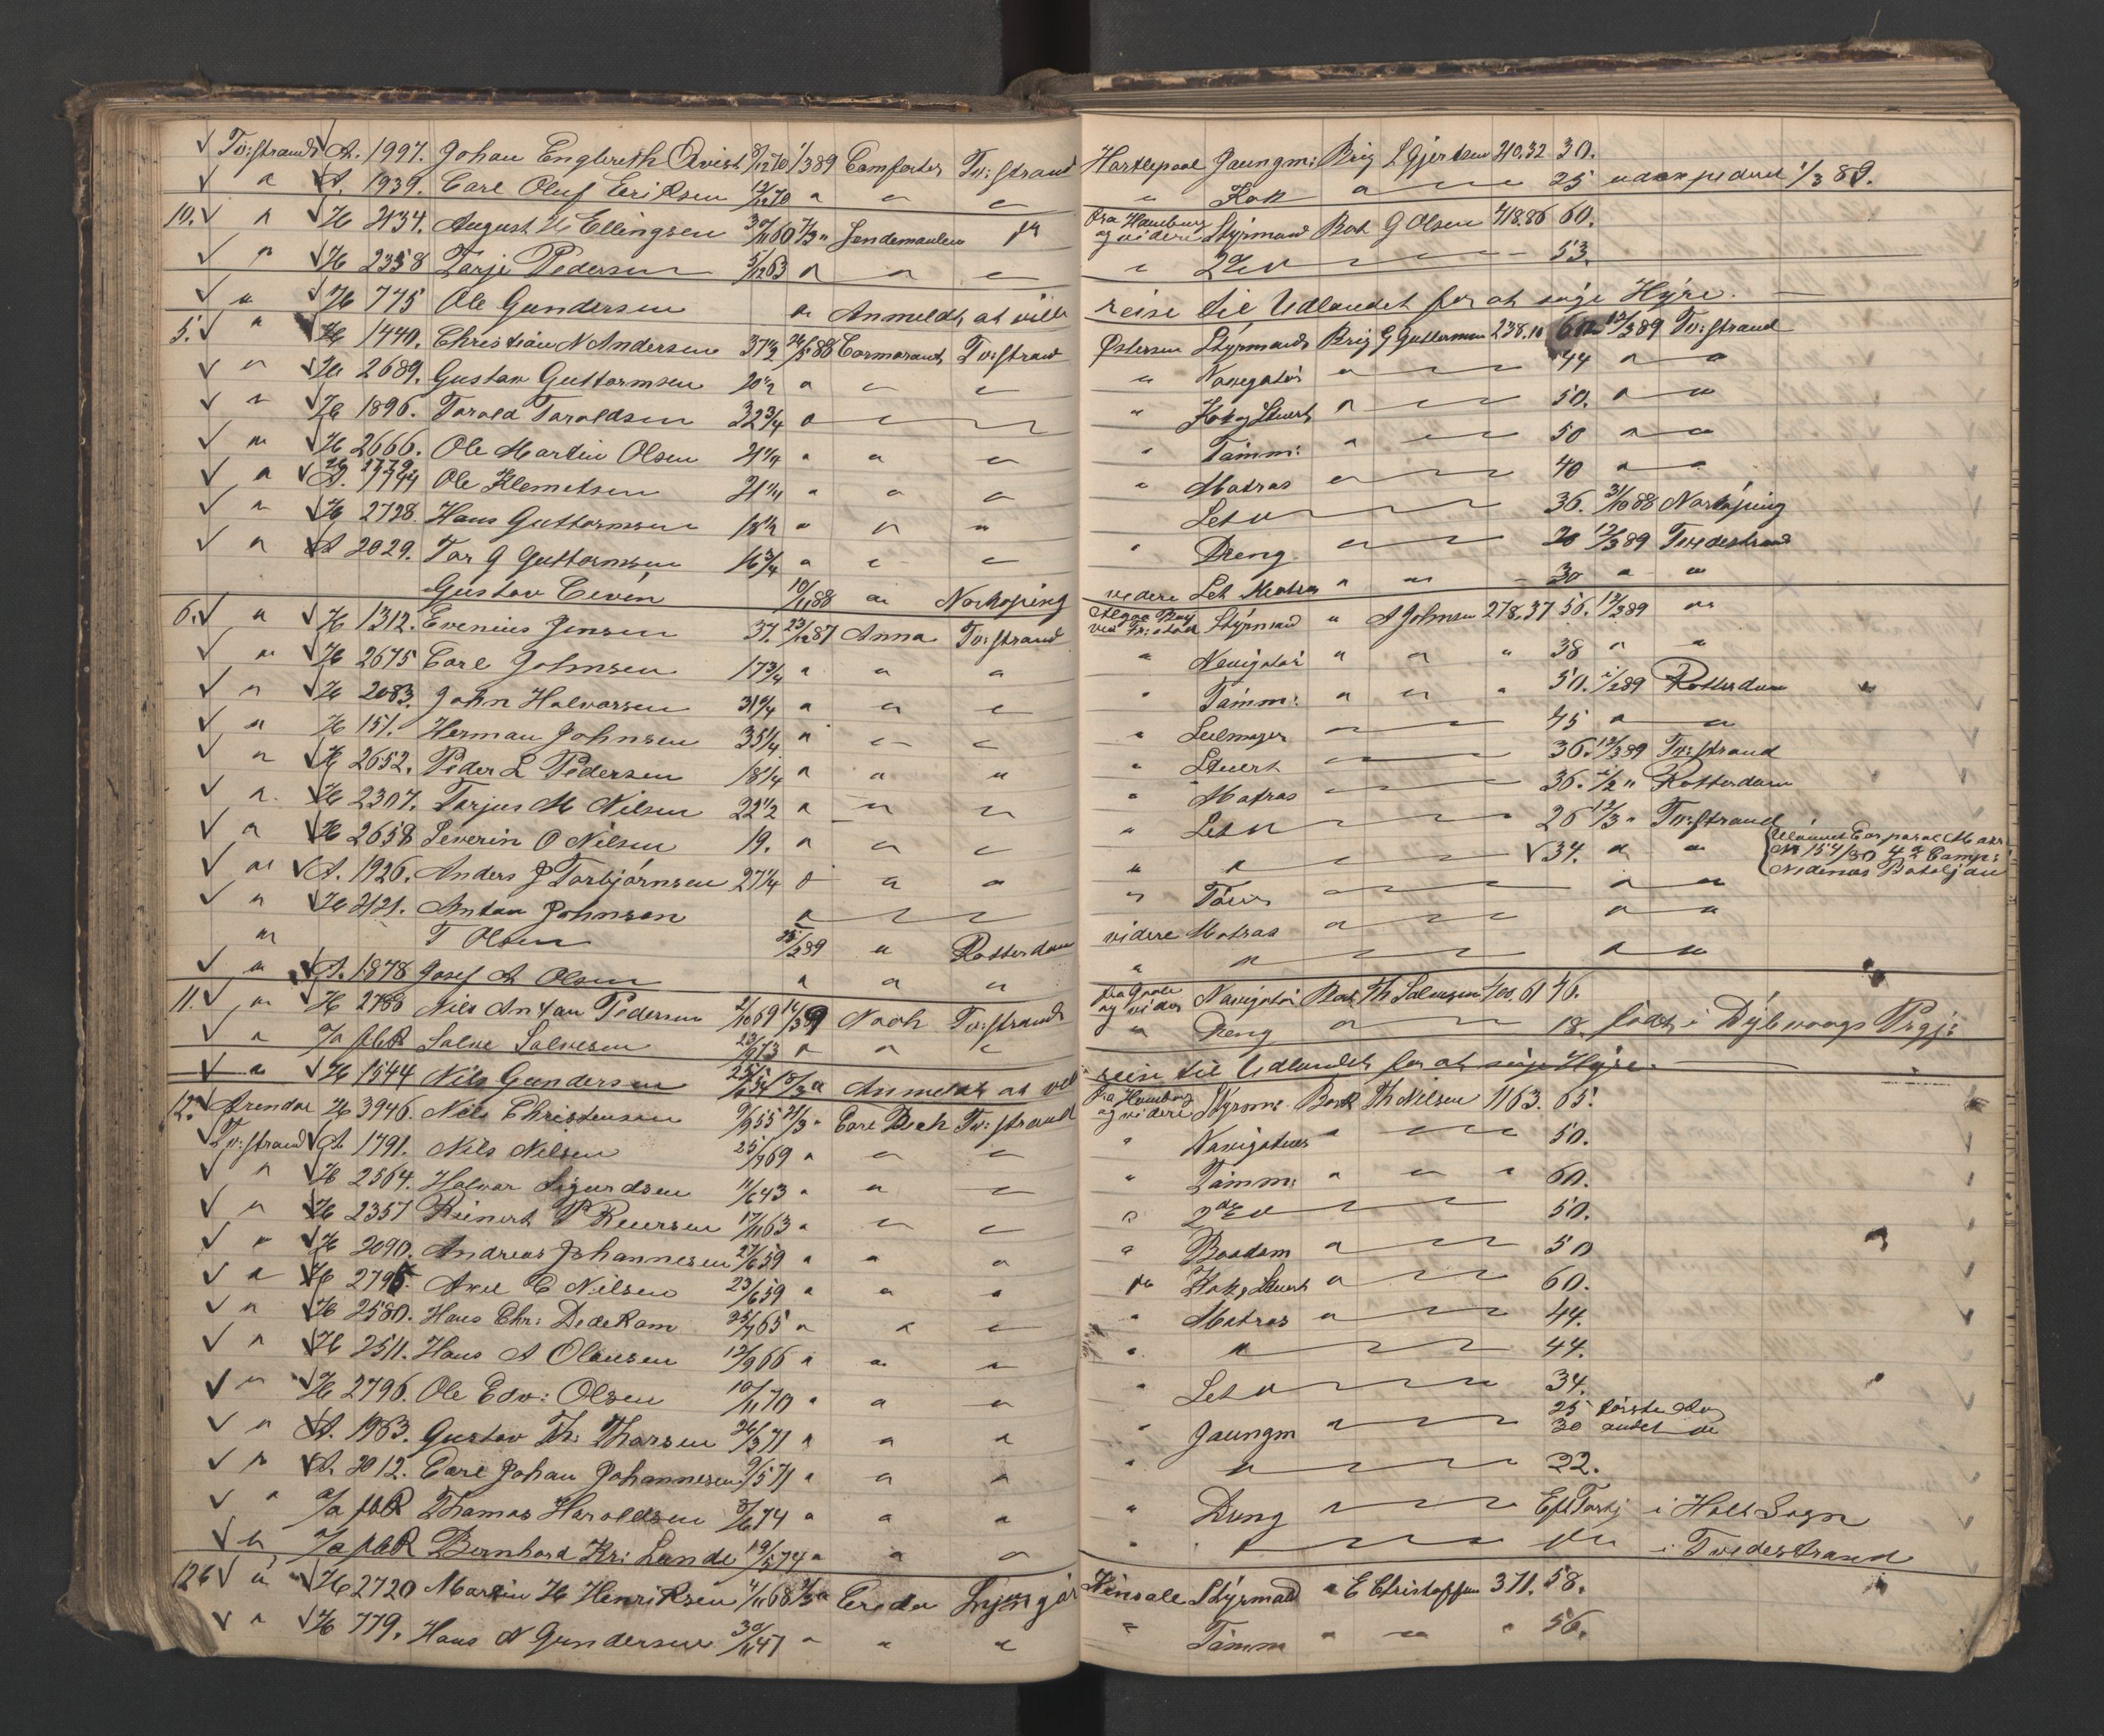 Tv:strand A. 1997. Johan Engbreth Qvist 8/12 70 1/3 89 Comforter Tv: strand Hartlepool Jaungm: Brig L Gjertsen 210.32 30.
" A. 1939. Carl Oluf Eriksen 12/12 70 " " " " Kok " 25 udexpederet 1/3 89.
10. " H 2134. August H Ellingsen 30/11 60 7/3 " Sendemanden fra Hamburg og videre Styrmand Bark G Olsen 418.86 60.
" H 2358 Tarje Pedersen 5/12 63 " " " " 2den " 53.
" H 775 Ole Gundersen " Anmeldt at ville reise til Udlandet for at søge Hyre.
5. " H 1440. Christian N Andersen 37 1/2 26/5 88 Cormorant Tv: strand Østersøen Styrmand Brig G Guttormsen 238.10 60. 12/3 89 Tv: strand
" H 2689. Gustav Guttormsen 20 1/2 " " " " Navigatør " 44 " "
" H 1896. Torold Toroldsen 32 3/4 " " Kok og Stuert " 50. " "
" H 2666. Ole Martin Olsen 21 1/4 " " " " Tømm: " 50 " "
" A. 1794 Ole Klemetsen 21 1/4 " " " " Matros " 40 " "
" H 2728. Hans Guttormsen 18 1/2 " " " Let " 36. 31/10 88 Norkøping
" A 2029. Tor G Guttormsen 16 3/4 " " " " Dreng " 20 12/3 89 Tvedestrand
Gustav Ceven 10/11 88 " Norkøping videre Let Matros " " 30 " "
6. " H 1312. Evenius Jensen 37. 23/12 87 Anna Tv: strand Algoa Bay via Fr:stad Styrmand " A Johnsen 278.37 56. 12/3 89 "
" H 2675 Carl Johnsen 17 3/4 " " " " Navigatør " " " 38 " "
" H 2083. John Halvorsen 31 1/4 " " " " Tømm: " " " 50. 1/2 89 Rotterdam
" H 151. Herman Johnsen 35 1/4 " " " " Seilmager 45 " "
" H 2652. Peder L Pedersen 18 1/4 " " " " Stuert 36. 12/3 89 Tv: strand
" H 2307. Tarjus M Nilsen 22 1/2 " " " " Matros 36. 1/2 " Rotterdam
" H 2658 Severin O Nilsen 19. " " " " Let " 26 12/3 " Tv: strand
" A. 1926. Anders J Torbjørnsen 27 1/4 " " " " " 34. " " No 154/80 4de Comp: Nedenæs Bataljon
" H 2121. Anton Johnson " " " "
" T Olsen 25/2 89 " Rotterdam videre Matros " " "
" A. 1878 Josef A Olsen " " " " " " "
11. " H 2788 Nils Anton Pedersen 2/10 69 14/3 89 Noah Tv: strand fra Goole og videre Navigatør Bark Th Salvesen 400.61 46.
" Salve Salvesen 23/9 73 " " " " Dreng " 18. født i Dybvaags Prgj:
" H 1544 Nils Gundersen " Anmeldt at ville reise til Udlandet for at søge Hyre.
12. Arendal H 3946. Nils Christensen 9/9 55 21/3 " Carl Bech Tv: strand fra Hamburg og videre Styrm: Bark Th Nilsen 1163. 65.
Tv: strand A 1791. Nils Nilsen 25/7 69 " " " " Navigatør " 50.
" H 2564. Halvor Sigurdsen 11/6 43 " " " " Tømm: " " " 60.
" H 2357 Reinert P Reiersen 17/11 63 " " " " 2den " 50.
" H 2090. Andreas Johannesen 27/6 59 " " " " Baadsm " 50
" H 2795. Axel C Nilsen 23/6 59 " " " Kok og Stuert " 60.
" H 2580. Hans Chr: Dedekam 25/7 65 " " " " Matros " 44.
" H 2511. Hans A Olausen 12/9 66 " " " " " 44.
" H 2796. Ole Edv: Olsen 10/11 70 " " " " Let " 34.
" A. 1963. Gustav Th: Thorsen 26/3 71 " " " " Jaungm " 25 første 30 andet
" A. 2012. Carl Johan Johannesen 9/5 71 " " " " " 22.
" Thomas Haroldsen 8/6 74 " " " " Dreng i Holt Sogn
" Bernhard Kr: Lunde 19/5 74 " " " " " i Tvedestrand
126 " H 2720 Martin H Henriksen 4/11 68 Kinsale Styrmand " E Christoffersen 371. 58.
" H 779. Hans N Gundersen 30/11 47 " " " " Tømm " " " 56.